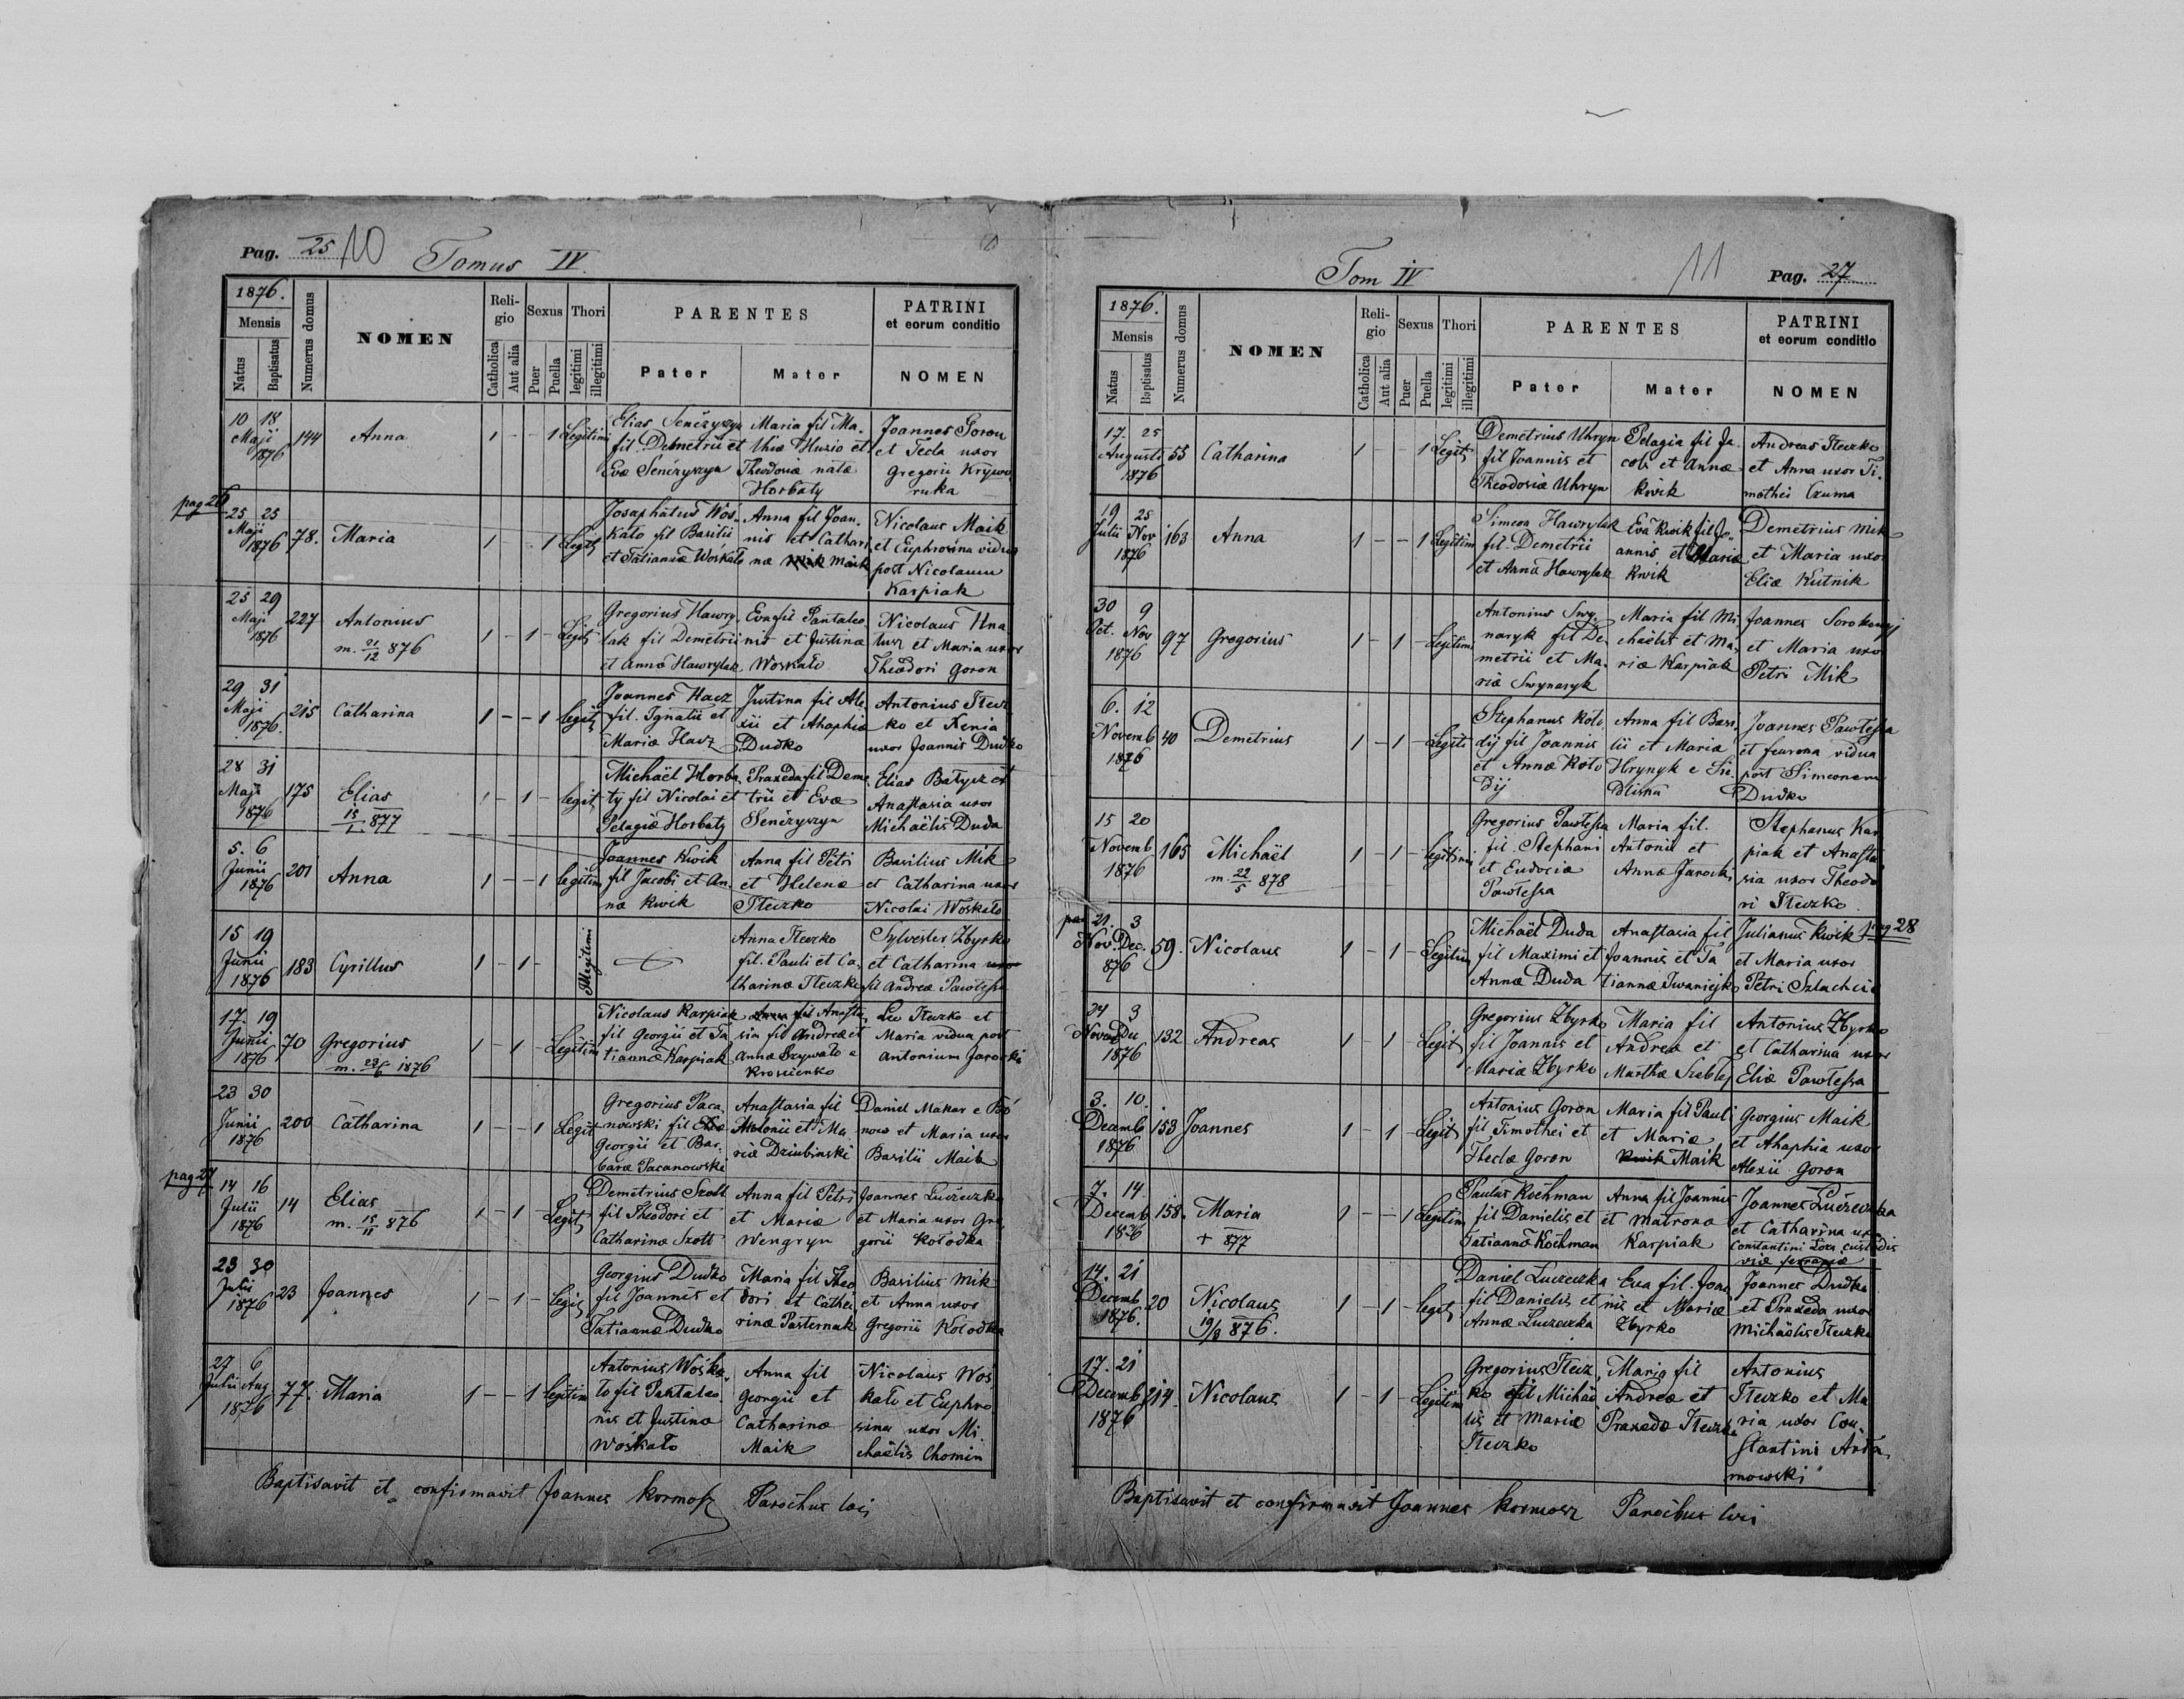 Pag. 25 10 Tomus IV.
1876.
Mensis
Natus
Baptisatus
Numerus domus
NOMEN
Religio
Catholica
Aut alia
Sexus
Puer
Puella
Thori
legitimi
illegitimi
PARENTES
Pater
Mater
PATRINI
et eorum conditio
NOMEN
10 18 Maji 1876 144 Anna 1 - - 1 Legitimi
Elias Senczyszyn
fil. Demetrii et
Evæ Senczyszyn
Maria fil Ma-
thiæ Huzio et
Theodoriæ natæ
Horbaty
Joannes Goron
et Tecla uxor
Gregorii Krywo
ruka
pag 26
25 25 Maji 1876 78. Maria 1 - - 1 Legit
Josaphatus Wos-
kało fil Basilii
et Tatiannæ Woskało
Anna fil Joan-
nis et Cathari
næ Maik
Nicolaus Maik
et Euphrosina vidua
post Nicolaum
Karpiak
25 29 Maji 1876 227 Antonius 1 - 1 - Legit
m. 21/12 876
Gregorius Hawry
lak fil Demetrii
et Annæ Hawrylak
Eva fil Pantaleo
nis et Justinæ
Woskało
Nicolaus Hna
tusz et Maria uxor
Theodori Goron
29 31 Maji 1876. 215 Catharina 1 - - 1 legit
Joannes Hacz
fil. Ignatii et
Mariæ Hacz
Justina fil Ale-
xii et Ahaphiæ
Dudko
Antonius Stecz
ko et Xenia
uxor Joannis Dudko
28 31 Maji 1876 175 Elias 1 - 1 - legit
15/1 877
Michaël Horba
ty fil Nicolai et
Pelagiæ Horbaty
Praxeda fil Deme
trii et Evæ
Senczyszyn
Elias Batycz et
Anastasia uxor
Michaëlis Duda
5. 6 Junii 1876 201 Anna 1 - - 1 legitim
Joannes Kwik
fil Jacobi et An-
næ Kwik
Anna fil Petri
et Helenæ
Steczko
Basilius Mik
et Catharina uxor
Nicolai Woskało
15 19 Junii 1876 183 Cyrillus 1 - 1 - Illegitimi
Anna Steczko
fil. Pauli et Ca-
tharinæ Steczko
Sylvester Zbyrko
et Catharina uxor
fil Andreæ Pawlessa
17. 19 Junii 1876 70 Gregorius 1 - 1 - Legitim
m. 23/6 1876
Nicolaus Karpiak
fil Georgii et Ta
tiannæ Karpiak
Anna fil Anasta
sia fil Andreæ et
Annæ Szywało e
Krościenko
Leo Steczko et
Maria vidua post
Antonium Jarocki
23 30 Junii 1876 200 Catharina 1 - - 1 Legit
Gregorius Paca
nowski fil
Georgii et Bar-
baræ Pacanowski
Anastasia fil
Antonii et Ma
riæ Dziubinski
Daniel Makar e
now et Maria uxor
Basilii Maik
pag 27
14 16 Julii 1876 14 Elias 1 - 1 - Legit
m. 15/11 876
Demetrius Szott
fil Theodori et
Catharinæ Szott
Anna fil Petri
et Mariæ
Wengryn
Joannes Luczeczko
et Maria uxor Gre
gorii Kołodka
23 30 Julii 1876 23 Joannes 1 - 1 - Legit
Georgius Dudko
fil Joannis et
Tatiannæ Dudko
Maria fil Theo
dori et Catha
rinæ Pasternak
Basilius Mik
et Anna uxor
Gregorii Kołodka
27 6 Julii Aug 1876 77. Maria 1 - - 1 legitim
Antonius Woska
ło fil Pantaleo
nis et Justinæ
Woskało
Anna fil
Georgii et
Catharinæ
Maik
Nicolaus Wos
kało et Euphro
sina uxor Mi
chaëlis Chomin
Baptisavit et confirmavit Joannes Kormosz Parochus loci
Tom IV 11 Pag. 27
1876.
Mensis
Natus
Baptisatus
Numerus domus
NOMEN
Religio
Catholica
Aut alia
Sexus
Puer
Puella
Thori
legitimi
illegitimi
PARENTES
Pater
Mater
PATRINI
et eorum conditio
NOMEN
17. 25 Augusti 1876 55 Catharina 1 - - 1 Legit
Demetrius Uhryn
fil Joannis et
Theodosiæ Uhryn
Pelagia fil Ja
cobi et Annæ
Kwik
Andreas Steczko
et Anna uxor Ti-
mothei Czuma
19 25 Julii Nov 1876 163 Anna 1 - - 1 Legitim
Simeon Hawrylak
fil. Demetrii
et Annæ Hawrylak
Eva Kwik fil Jo-
annis et Mariæ
Kwik
Demetrius Mik
et Maria uxor
Eliæ Kutnik
30 9 Oct. Nov 1876 97 Gregorius 1 - 1 - Legitimi
Antonius Swy-
naryk fil De
metrii et Ma-
riæ Swynaryk
Maria fil Mi
chaëlis et Ma-
riæ Karpiak
Joannes Sorokowyj
et Maria uxor
Petri Mik
6. 12 Novemb 1876 40 Demetrius 1 - 1 - Legiti
Stephanus Koło
dij fil Joannis
et Annæ Koło
dij
Anna fil Basi
lii et Mariæ
Hrynyk e Sie
dliska
Joannes Pawlessa
et feurona vidua
post Simeonem
Dudko
15 20 Novemb 1876 165 Michaël 1 - 1 - legitimi
m. 22/5 878
Gregorius Pawlessa
fil. Stephani
et Eudociæ
Pawlessa
Maria fil.
Antonii et
Annæ Jarocki
Stephanus Kar
piak et Anasta
sia uxor Theodo
ri Steczko
21. 3 Nov. Dec. 876 59. Nicolaus 1 - 1 - Legitim
Michaël Duda
fil Maximi et
Annæ Duda
Anastasia fil
Joannis et Ta
tiannæ Iwaniejko
Julianus Kwik pag 28
et Maria uxor
Petri Szlachcic
24 3 Novem De 1876 132 Andreas 1 1 Legit
Gregorius Zbyrko
fil Joannis et
Mariæ Zbyrko
Maria fil
Andreæ et
Marthæ
Antonius Zbyrko
et Catharina uxor
Eliæ Pawlessa
3. 10. Decemb 1876 153 Joannes 1 - 1 - Legit
Antonius Goron
fil Timothei et
Theclæ Goron
Maria fil Pauli
et Mariæ
Kwik Maik
Georgius Maik
et Ahaphia uxor
Alexii Goron
7. 14. Decemb 1876 158. Maria 1 - - 1 Legitim
+ 877
Paulus Kochman
fil Danielis et
Tatiannæ Kochman
Anna fil Joannis
et Matronæ
Karpiak
Joannes Luczeczka
et Catharina uxor
Constantini custodis
viæ ferrariæ
14. 21 Decemb 1876. 20 Nicolaus 1 - 1 - legit
19/9 876.
Daniel Luczeczka
fil Danielis et
Annæ Luczeczka
Eva fil. Joan
nis et Mariæ
Zbyrko
Joannes Dudko
et Praxeda uxor
Michaëlis Steczko
17. 21 Decemb 1876 214. Nicolaus 1 - 1 - Legitim
Gregorius Stecz
ko fil Michaë
lis et Mariæ
Steczko
Maria fil
Andreæ et
Praxedæ Steczko
Antonius
Steczko et Ma
ria uxor Con
stantini Ada
mowski
Baptisavit et confirmavit Joannes Kormosz Parochus loci